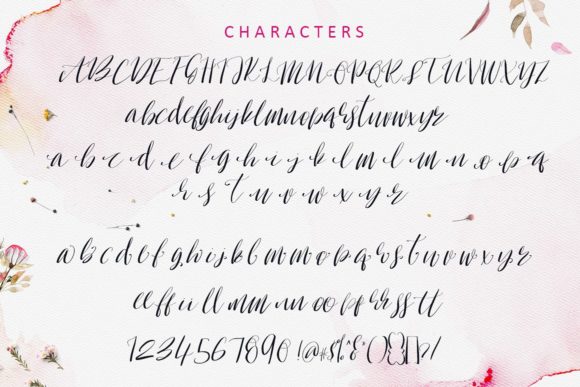 CHARACTERS
ABCDEFGHIJKLMNOPQRSTUVWXYZ
abcdefghijklmnopqrstuvwxyz
a b c d e f g h i j k l m n o p q
r s t u v w x y z
abcdefghijklmnopqrstuvwxyz
ee ff ii ll mm nn oo pp rr ss tt
1234567890 !@#$%^&*(){}[]?/